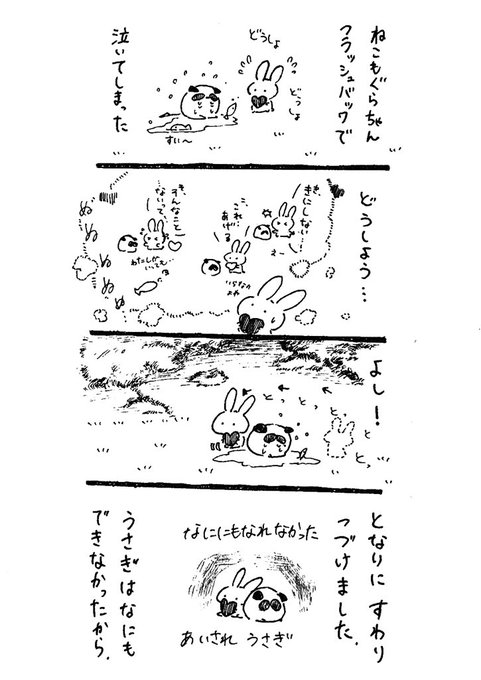 ねこもぐらちゃん
フラッシュバックで
泣いてしまった
どうしよ
どうしよ
すい〜
どうしよう…
き、きにしない
え〜
こ、これ
あげる
いらない
そ、そんなこと
ないって、
わたしが
ぬぬぬぬぬ
よし！
とっ
とっ
とっ
とっ
となりに すわり
つづけました。
うさぎはなにも
できなかったから。
なににもなれなかった
あいされ うさぎ